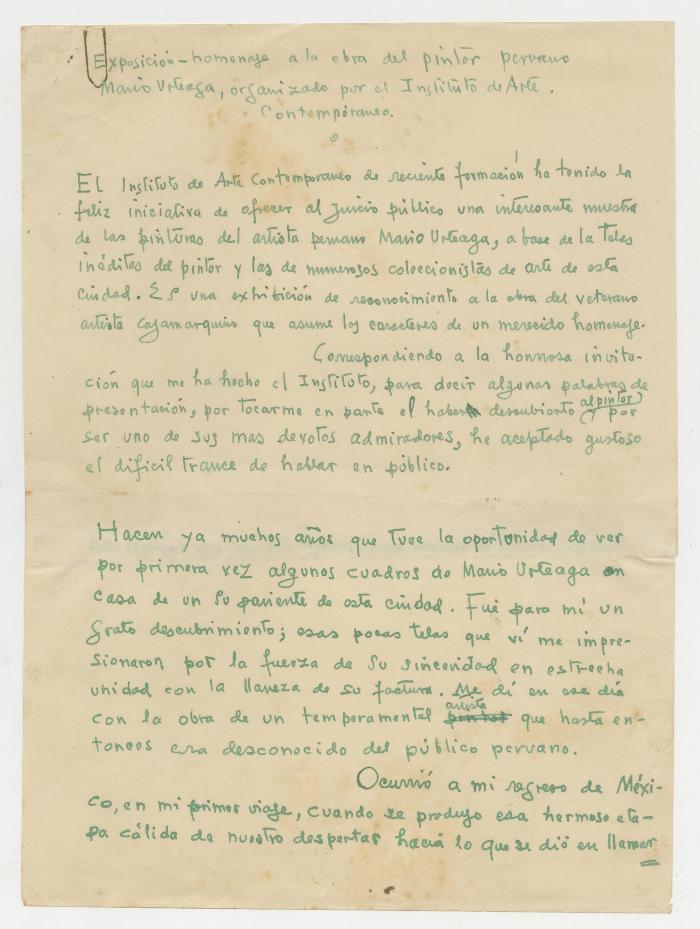 Exposición-homenaje a la obra del pintor peruano
Mario Urteaga, organizado por el Instituto de Arte.
Contemporáneo.
El Instituto de Arte Contemporaneo de reciente formación ha tenido la
feliz iniciativa de ofrecer al juicio público una interesante muestra
de las pinturas del artista peruano Mario Urteaga, a base de la telas
inéditas del pintor y las de numerosos coleccionistas de arte de esta
ciudad. Es una exhibición de reconocimiento a la obra del veterano
artista cajamarquino que asume los caracteres de un merecido homenaje.
Correspondiendo a la honrosa invita-
ción que me ha hecho el Instituto, para decir algunas palabras de
presentación, por tocarme en parte el haber descubierto al pintor y por
ser uno de sus mas devotos admiradores, he aceptado gustoso
el dificil trance de hablar en público.
Hacen ya muchos años que tuve la oportunidad de ver
por primera vez algunos cuadros de Mario Urteaga en
casa de un su pariente de esta ciudad. Fué para mí un
grato descubrimiento; esas pocas telas que ví me impre-
sionaron por la fuerza de su sinceridad en estrecha
unidad con la llaneza de su factura. Me dí en ese día
con la obra de un temperamental artista pintor que hasta en-
tonces era desconocido del público peruano.
Ocurrió a mi regreso de Méxi-
co, en mi primer viaje, cuando se produjo esa hermosa eta-
pa cálida de nuestro despertar hacia lo que se dió en llamar